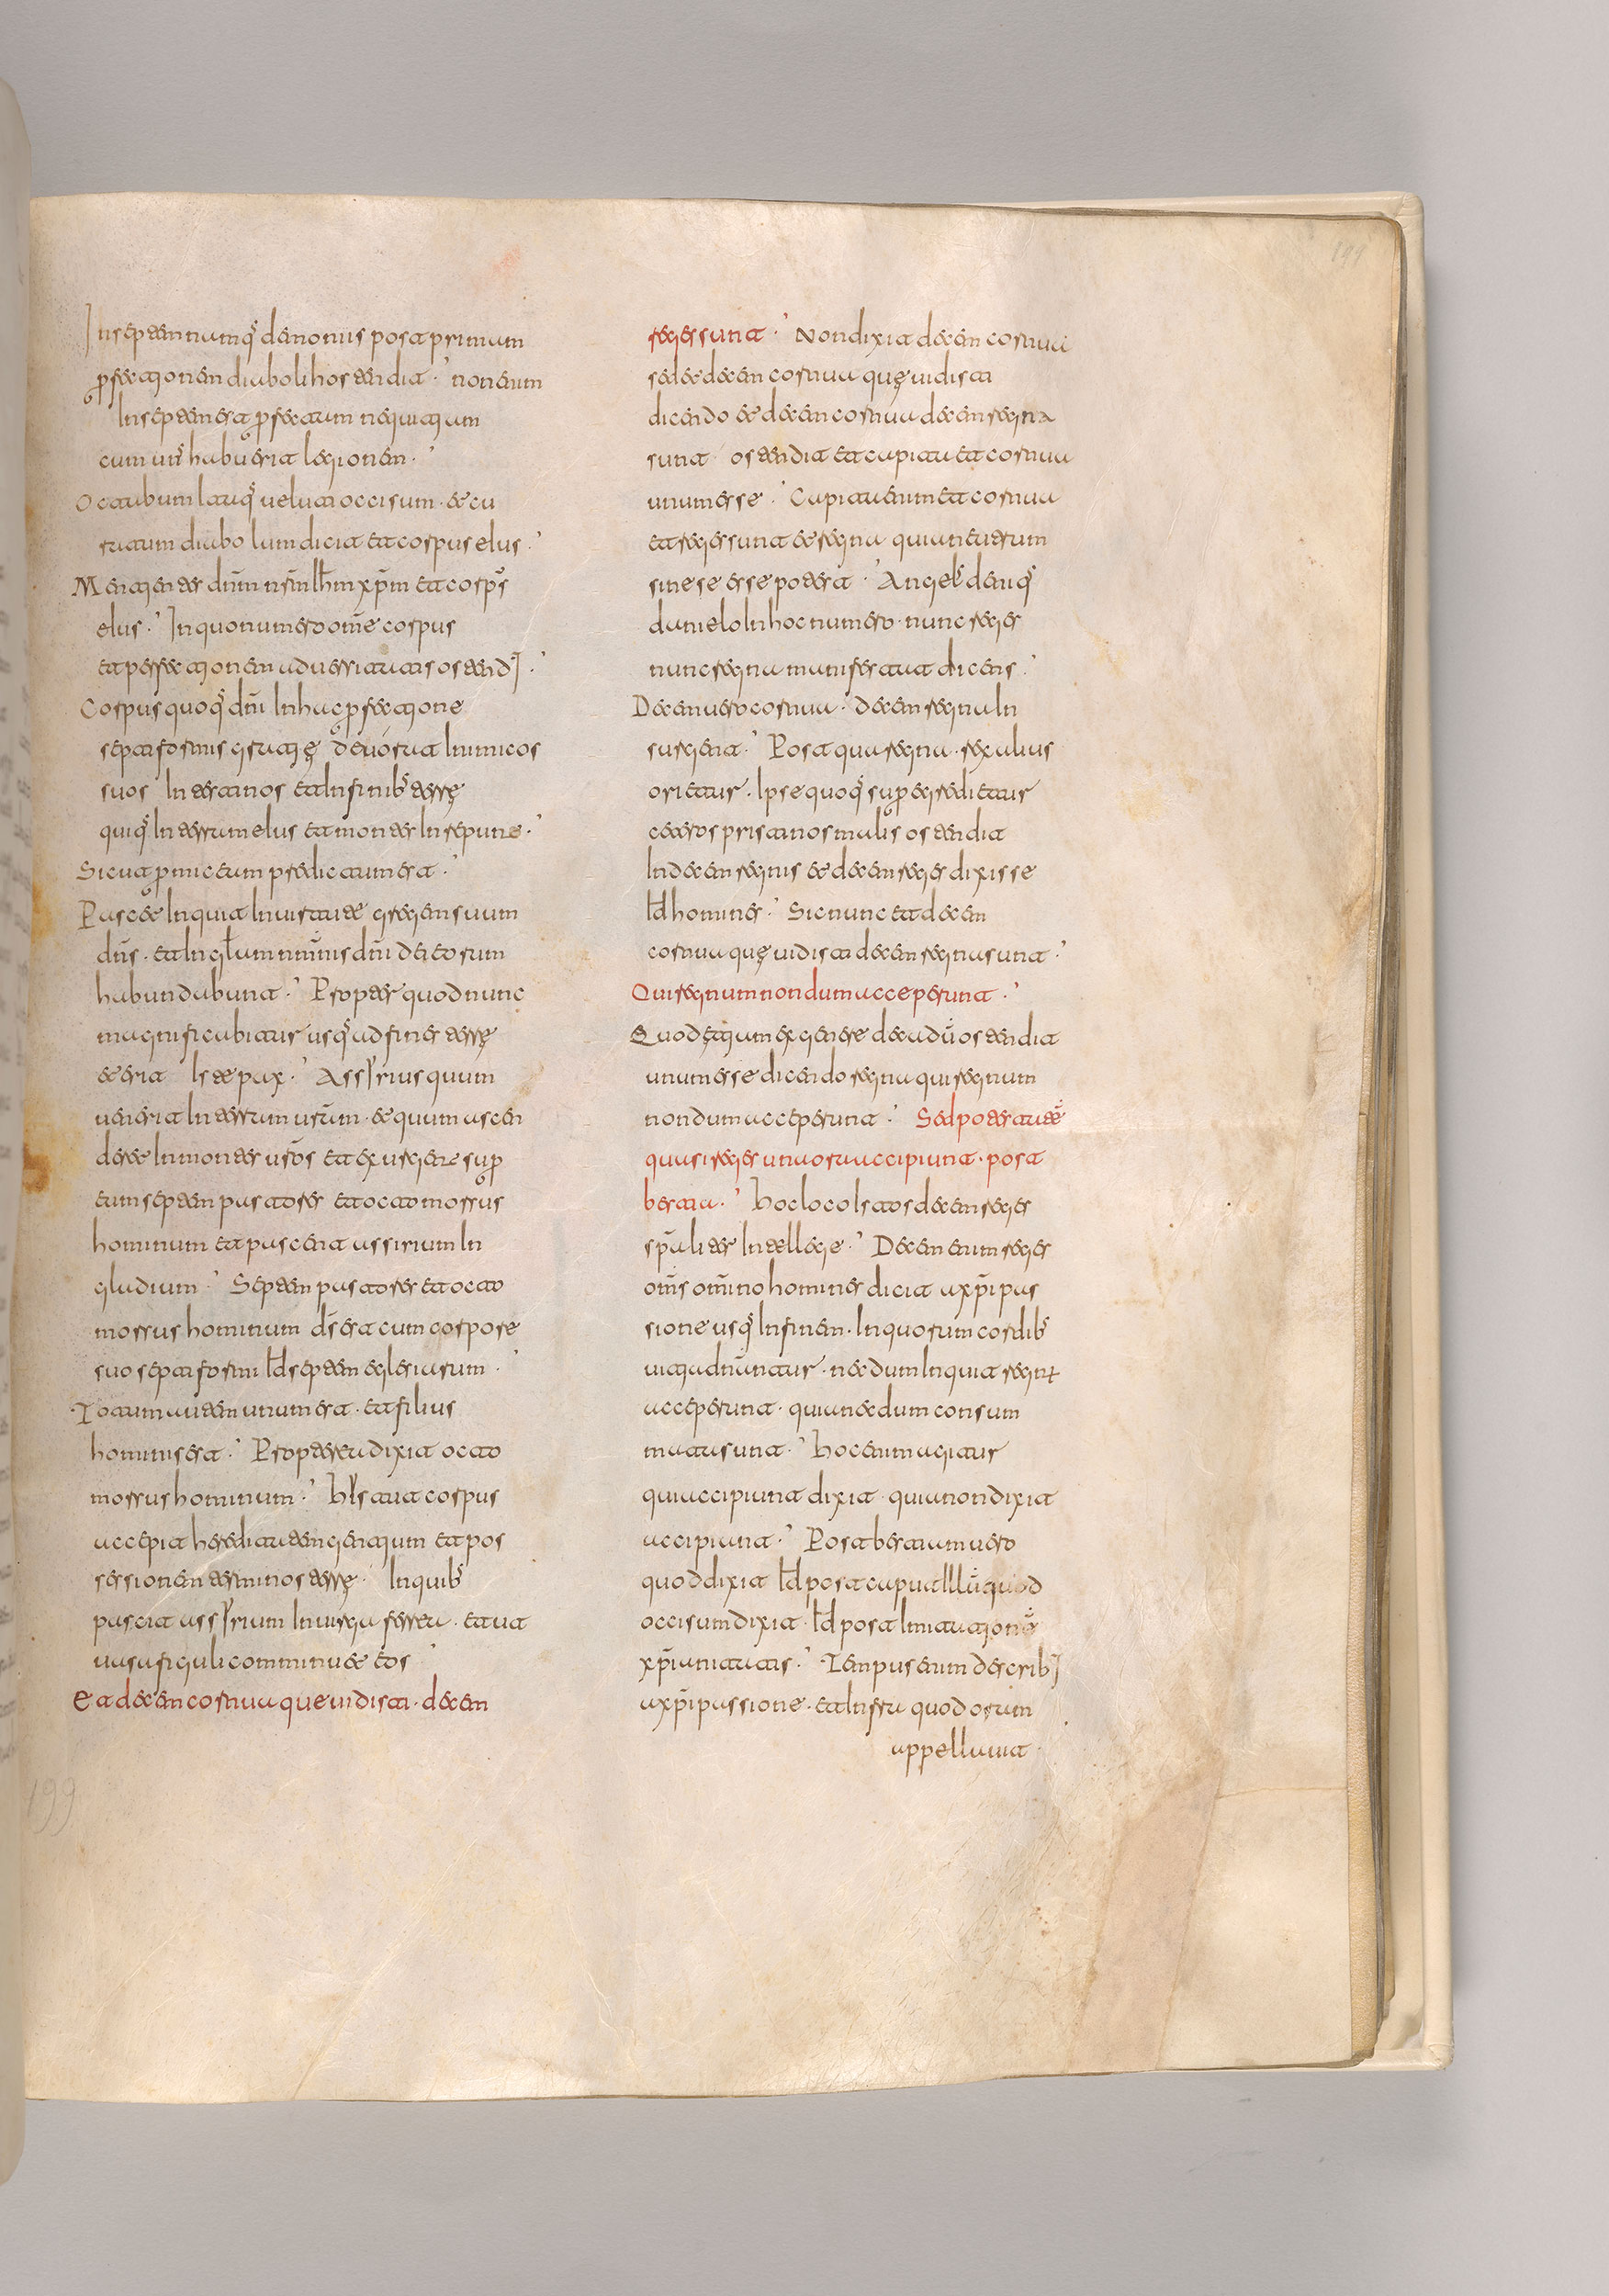 In septem namq demoniis post primum
pfectjonem diaboli hostendit. non enim
In septem est pfectum nequitjam
cum uns habuerit legionem.
Octabum itaq ueluti occisum. et cu
ratum diabolum dicit et corpus eius.
Mentjentes dnm nsm ihm xpm et corps
eius. In quo numero ome corpus
et perfectjonem aduersitatis ostendj.
Corpus quoq dni in hac pfectjone
septiformis gratję deuorat inimicos
suos in eternos et in finib terrę
quiq in terram eius et montes in
Sicut p miceam predicatum est.
Pascet inquit in uirtute gregem suum
dns. et in glam nminis dni dei eorum
habundabunt. Propter quod nunc
magnificabitur usq ad fines terrę
et erit iste pax. Assyrius quum
uenerit in terram usram. et quum ascen
deret in montes usros et exurgent sup
eum septem pastores et octo morsus
hominum et pascent assirium in
gladium. Septem pastores et octo
morsus hominum ds est cum corpore
suo septiformi id septem eglesiarum.
Totum autem unum est. et filius
hominis est. Propterea dixit octo
morsus hominum. corpus
accepit hereditatem gentjum et pos
sessionem terminos terrę. In quib
pascit assyrium in uirga ferrea. et ut
uasa figuli comminuet eos
Et decem cornua que uidisti. decem
reges sunt. Non dixit decem cornua
sed et decem cornua quę uidisti
dicendo et decem cornua decem regna
sunt ostendit et capita et cornua
unum esse. Capita enim et cornua
et reges sunt et regna quia neutrum
sine se esse potest. Angels deniq
danielo in hoc numero. nunc reges
nunc regna manifestat dicens.
Decem uero cornua. decem regna in
surgent. Post qua regna. rex alius
orietur. Ipse quoq supgredietur
ceteros pristinos malis ostendit
In decem regnis et decem reges dixisse
id homines. Sic nunc et decem
cornua quę uidisti decem regna sunt.
Qui regnum nondum acceperunt.
Quod etjam ex genere de adu ostendit
unum esse dicendo regna qui regnum
nondum acceperunt. Sed potestate
quasi reges una ora accipiunt. post
bestia. Hoc loco istos decem reges
spaliter intellege. Decem enim reges
oms omnino homines dicit a xpi pas
sione usq in finem. In quorum cordib
uitja dnantur. necdum inquit regnum
acceperunt. quia necdum consum
mata sunt. Hoc enim agitur
quia accipiunt dixit quia non dixit
accipiunt. Post bestiam uero
quod dixit id post caput illu quod
occisum dixit. id post imitatjone
xpianitatis. Tempus enim describj
a xpi passione. et infra quod oram
appellauit.